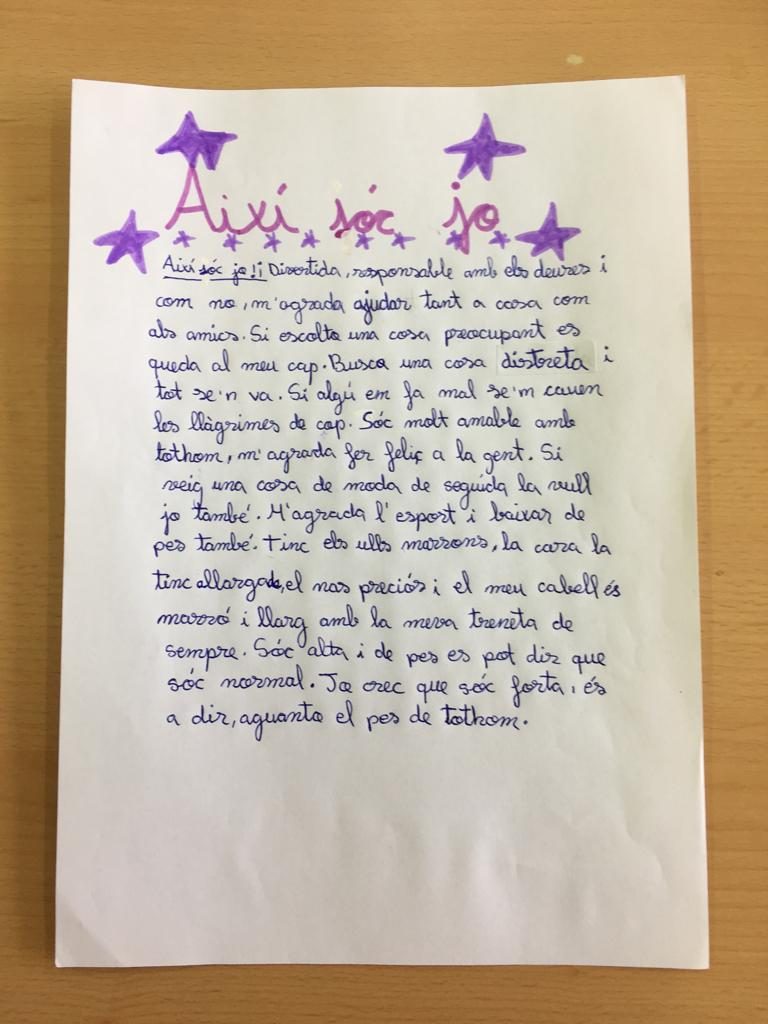 Així sóc jo
Així sóc jo!¡ Divertida, responsable amb els deures i
com no, m'agrada ajudar tant a casa com
als amics. Si escolto una cosa preocupant es
queda al meu cap. Busco una cosa distreta i
tot se'n va. Si algú em fa mal se'm cauen
les llàgrimes de cop. Sóc molt amable amb
tothom, m'agrada fer feliç a la gent. Si
veig una cosa de moda de seguida la vull
jo també. M'agrada l'esport i baixar de
pes també. Tinc els ulls marrons, la cara la
tinc allargada, el nas preciós i el meu cabell és
marró i llarg amb la meva treneta de
sempre. Sóc alta i de pes es pot dir que
sóc normal. Jo crec que sóc forta, és
a dir, aguanto el pes de tothom.